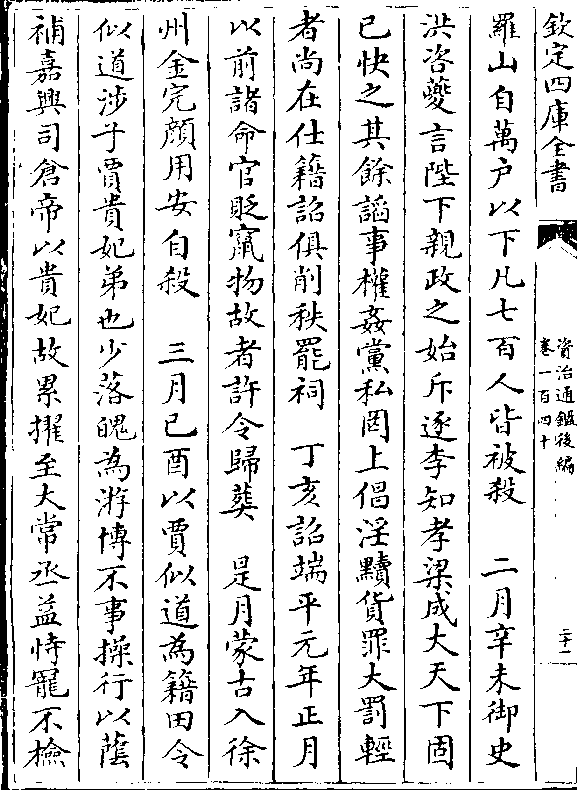 欽定四庫全書
資治通鑑後編
卷一百四十
二十一
羅山自萬户以下凡七百人皆被殺　二月辛未御史
洪咨夔言陛下親政之始斥逐李知孝梁成大天下固
已快之其餘謟事權姦黨私罔上倡淫黷貨罪大罰輕
者尚在仕籍詔俱削秩罷祠　丁亥詔端平元年正月
以前諸命官貶竄物故者許令歸葬　是月蒙古入徐
州金完顔用安自殺　三月已酉以賈似道為籍田令
似道涉子賈貴妃弟也少落魄為游博不事操行以蔭
補嘉興司倉帝以貴妃故累擢至大常丞益恃寵不檢